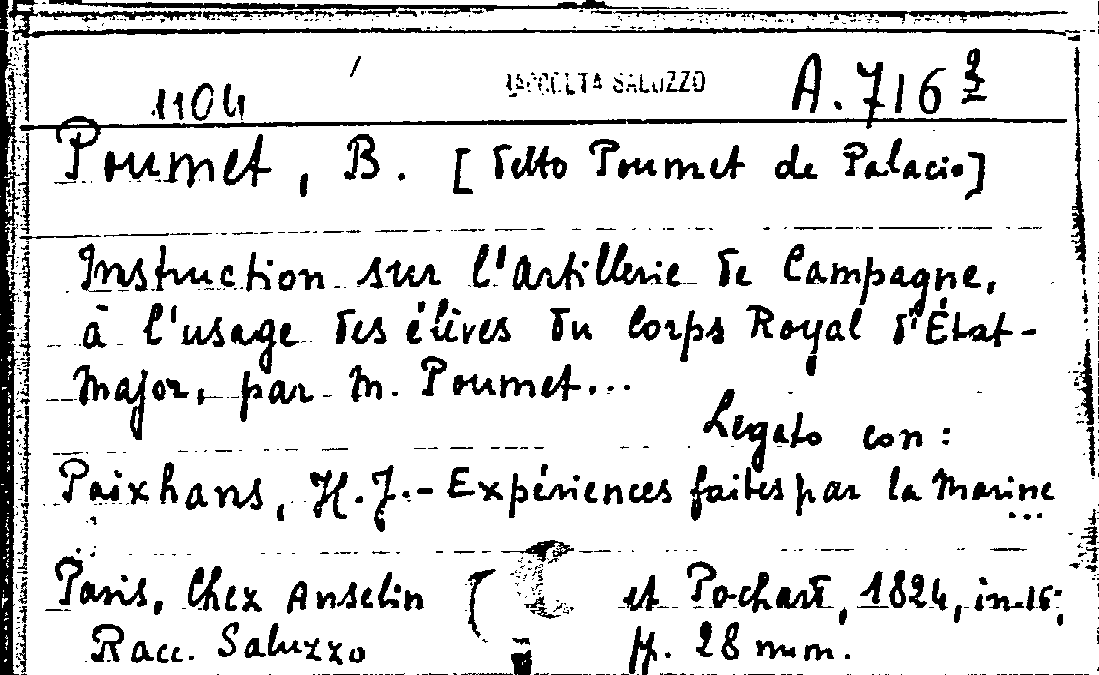 1104 / RACCOLTA SALUZZO A.716²
Poumet, B. [detto Poumet de Palacio]
Instruction sur l'artillerie de Campagne,
à l'usage des élèves du Corps Royal d'État-
Major, par M. Poumet...
Legato con:
Paixhans, H.J.- Expériences faites par la Marine
...
Paris, Chez Anselin et Pochard, 1824, in-16;
Racc. Saluzzo pp. 28 num.